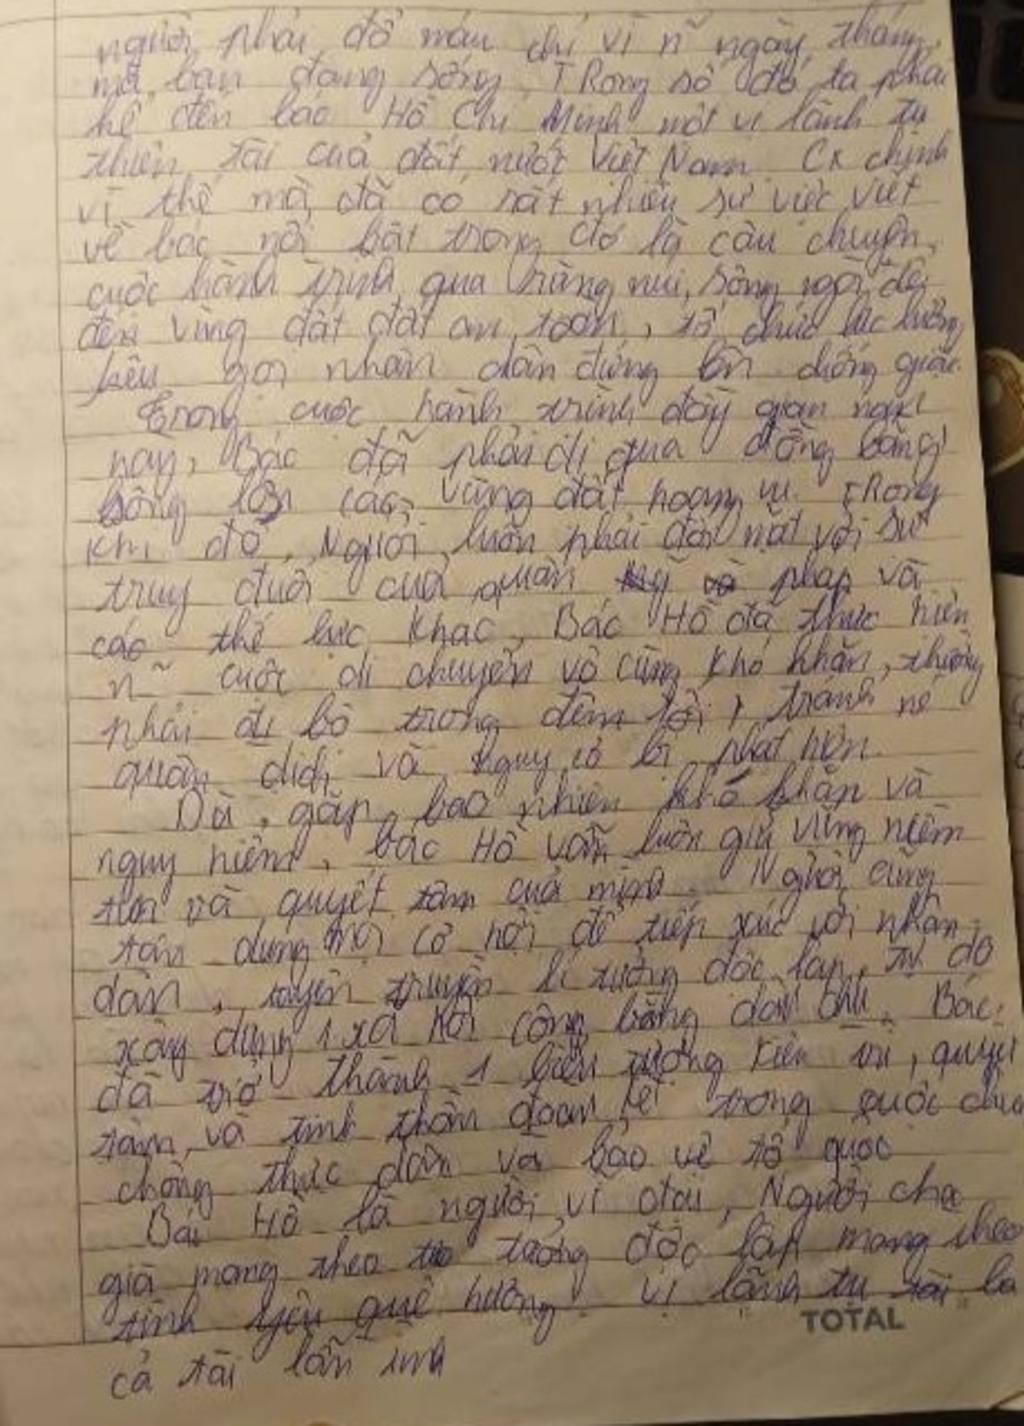 người phải đổ máu chỉ vì n~ ngày tháng
mà bạn đang sống, TRong số đó ta phải
kể đến bác Hồ Chí Minh một vị lãnh tụ
thiên tài của đất nước Việt Nam. Cx chính
vì thế mà đã có rất nhiều sự việc viết
về bác nổi bật trong đó là câu chuyện,
cuộc hành trình qua rừng núi, sông ngòi để
đến vùng đất đất an toàn, tổ chức lực lượng
kêu gọi nhân dân đứng lên chống giặc.
Trong cuộc hành trình đầy gian
nay, Bác đã phải đi qua đồng bằng
sông lớn các vùng đất hoang vu. TRong
khi đó, Người luôn phải đối mặt với sự
truy đuổi của quân pháp và
các thế lực khác, Bác Hồ đã thực hiện
n~ cuộc di chuyển vô cùng khó khăn, thường
phải đi bộ trong đêm tối, tránh né
quân địch và nguy cơ bị phát hiện.
Dù gặp bao nhiêu khó khăn và
nguy hiểm, bác Hồ vẫn luôn giữ vững niềm
tin và quyết tâm của mình. Người cũng
tận dụng mọi cơ hội để tiếp xúc với nhân
dân, tuyên truyền lí tưởng độc lập, tự do
xây dựng 1 xã hội công bằng dân chủ. Bác
đã trở thành 1 biểu tượng kiên trì, quyết
tâm, và tinh thần đoàn kết trong cuộc chiến
chống thực dân và bảo vệ tổ quốc
Bác Hồ là người vĩ đại, Người cha
già mang theo tư tưởng độc lập mang theo
tình yêu quê hương vị lãnh tụ tài ba
cả tài lẫn
TOTAL